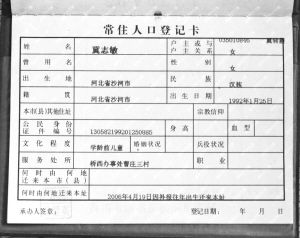 常住人口登记卡
姓名 冀志敏 户主或与户主关系 女
曾用名 性别 女
出生地 河北省沙河市 民族 汉族
籍贯 河北省沙河市 出生日期 1992年1月25日
本市(县)其他住址 宗教信仰
公民身份证件编号 130582199201250985 身高 血型
文化程度 学龄前儿童 婚姻状况 兵役状况
服务处所 桥西办事处曹庄三村 职业
何时由何地迁来本市(县)
何时由何地迁来本址 2006年4月19日因补报往年出生迁来本址
承办人签章: 登记日期: 年 月 日